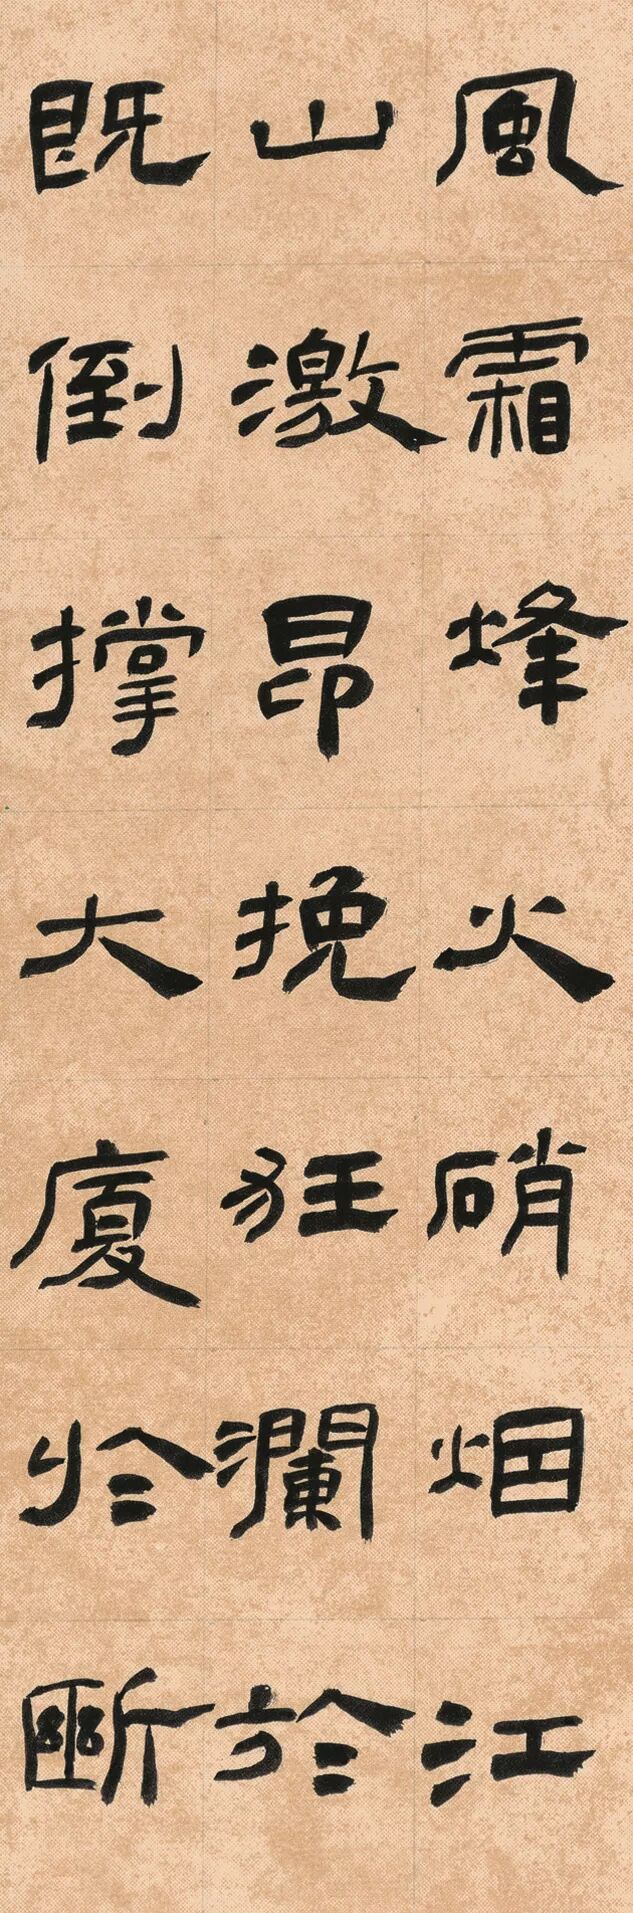 風霜烽火硝烟江
山激昂挽狂瀾於
既倒撑大廈於斷